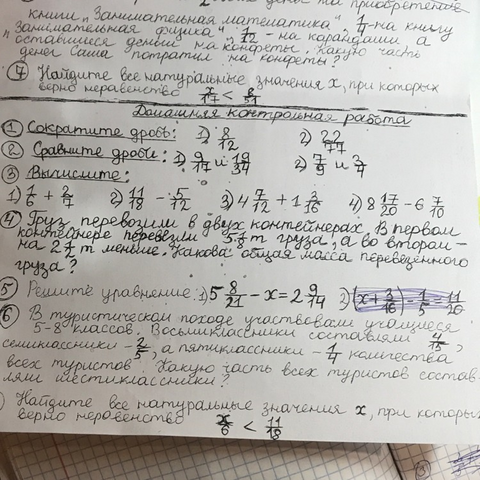 деньги на приобретение
книги „Занимательная математика“, 1/4 - на книгу
„Занимательная физика“, 1/12 - на карандаши, а
оставшиеся деньги на конфеты. Какую часть
денег Саша потратил на конфеты?
⑦ Найдите все натуральные значения x, при которых
верно неравенство x/17 < 8/51
Домашняя контрольная работа
① Сократите дробь: 1) 8/12 2) 22/77
② Сравните дроби: 1) 9/17 и 19/34 2) 7/9 и 3/4
③ Вычислите:
1) 1/6 + 2/7 2) 11/18 - 5/12 3) 4 7/12 + 1 3/16 4) 8 17/20 - 6 7/10
④ Груз перевозили в двух контейнерах. В первом
контейнере перевезли т груза, а во втором -
на т меньше. Какова общая масса перевезённого
груза?
⑤ Решите уравнение: 1) 5 8/21 - x = 2 9/14 2) (x + 3/16) - 1/5 = 11/20
⑥ В туристическом походе участвовали учащиеся
5-8 классов. Восьмиклассники составляли 4/15,
семиклассники - 2/5, а пятиклассники - 1/4 количества
всех туристов. Какую часть всех туристов состав-
ляли шестиклассники?
Найдите все натуральные значения x, при которых
верно неравенство
x/6 < 11/18